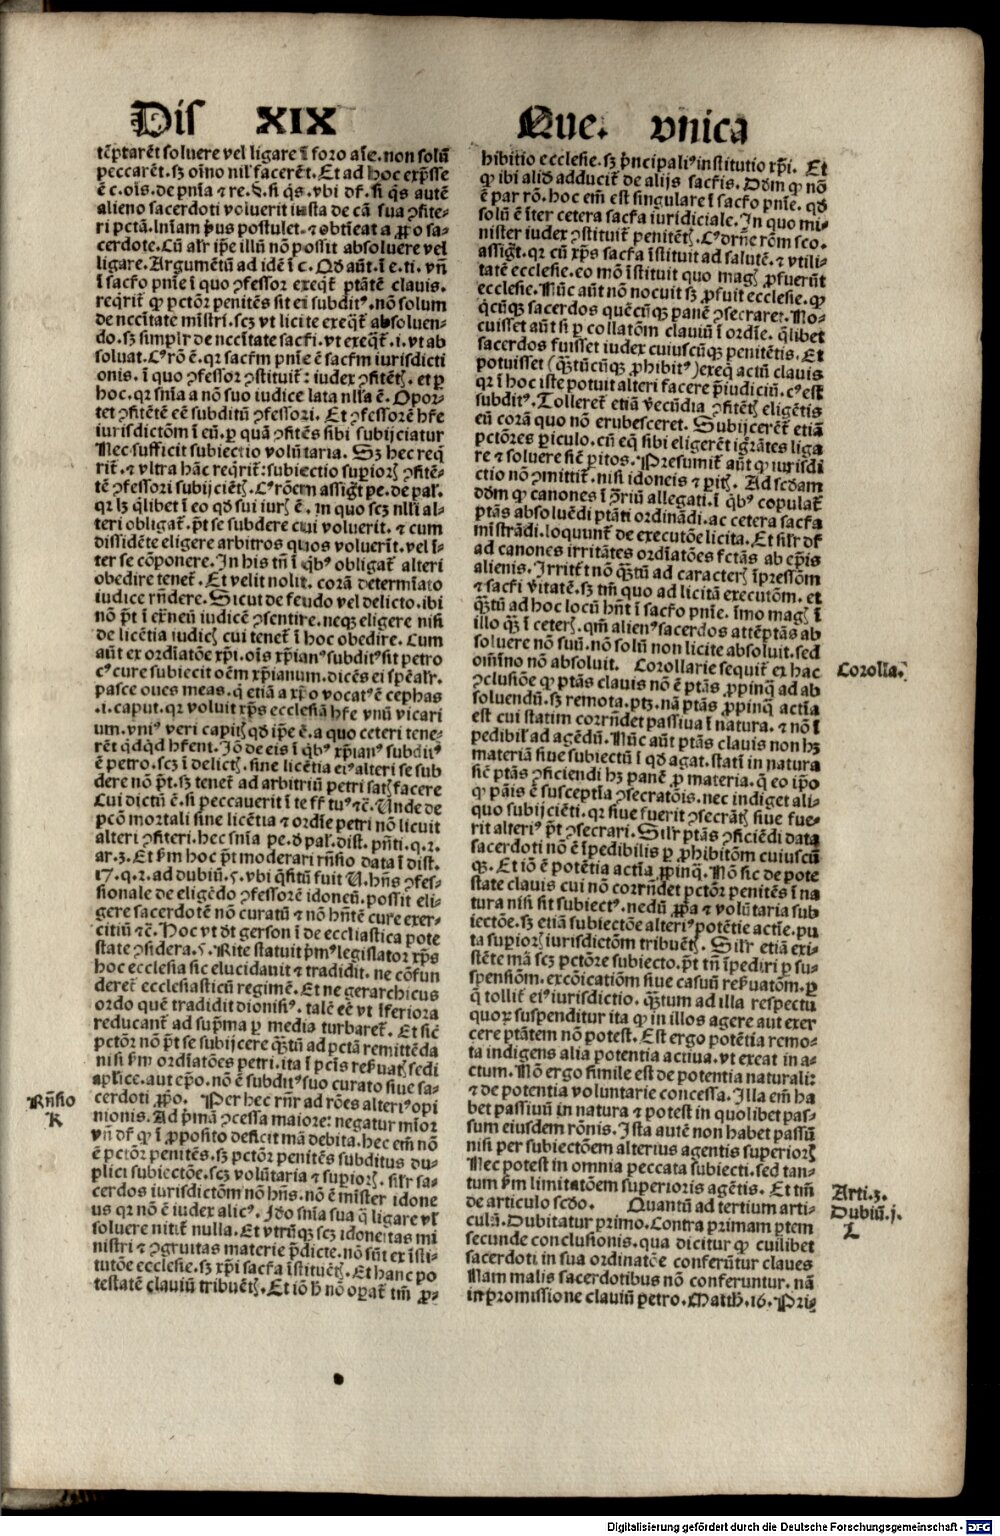 Dis XIX Que. vnica
tẽptarẽt soluere vel ligare ĩ foro aĩe. non solũ
peccarẽt. sꝫ oĩno nil' facerẽt. Et ad hoc expͣsse
ẽ c. oĩs. de pnĩa ⁊ re. §. si q̃s. vbi dr̃. si q̃s autẽ
alieno sacerdoti voluerit iusta de cã sua ꝯfite-
ri pctã. lnĩam pͥus postulet. ⁊ obtĩeat a ꝓͥo sa-
cerdote. Cũ alr̃ ip̃e illũ nõ possit absoluere vel
ligare. Argumẽtũ ad idẽ ĩ c. Qd̃ aũt. ĩ e. ti. vñ
ĩ sacr̃o pnĩe ĩ quo ꝯfessor exeqͥt ptãtẽ clauis.
reqͥrit̃ ꝙ pctõr penitẽs sit ei subditꝰ. nõ solum
de nccĩtate mĩstri. scꝫ vt licite exeqͥt absoluen-
do. sꝫ simplr̃ de nccĩtate sacr̃i. vt exeqͥt. i. vt ab
soluat. Cꝰ rõ ẽ. qꝛ sacr̃m pnĩe ẽ sacr̃m iurisdicti
onis. ĩ quo ꝯfessor ꝯstituit̃: iudex ꝯfitẽtꝭ. et ꝑ
hoc. qꝛ snĩa a nõ suo iudice lata nlĩa ẽ. Opor-
tet ꝯfitẽtẽ eẽ subditũ ꝯfessori. Et ꝯfessorẽ hr̃e
iurisdictõm ĩ eũ. ꝑ quã ꝯfitẽs sibi subijciatur
Nec sufficit subiectio volũtaria. Sꝫ hec req̃
rit̃. ⁊ vltra hãc reqͥrit̃: subiectio supiorꝭ ꝯfitẽ-
tẽ ꝯfessori subijciẽtꝭ. Cꝰ rõem assigt̃ pe. de pal'.
qꝛ lꝫ qͥlibet ĩ eo qd̃ sui iurꝭ ẽ. in quo scꝫ nlĩ al-
teri obligat̃. pͥt se subdere cui voluerit. ⁊ cum
dissidẽte eligere arbitros quos voluerĩt. vel ĩ-
ter se cõponere. In his tñ ĩ qͥbꝰ obligat̃ alteri
obedire tenet̃. Et velit nolit. corã determĩato
iudice rñdere. Sicut de feudo vel delicto. ibi
nõ pͥt ĩ extͣneũ iudicẽ ꝯsentire. neqꝫ eligere nisi
de licẽtia iudicꝭ cui tenet̃ ĩ hoc obedire. Cum
aũt ex ordĩatõe xp̃i. oĩs xp̃ianꝰ subditꝰ sit petro
cꝰ cure subiecit oẽm xp̃ianum. dicẽs ei spẽalr̃.
pasce oues meas. q̃ etiã a xp̃o vocatꝰ ẽ cephas
.i. caput. qꝛ voluit xp̃s ecclesiã hr̃e vnũ vicari
um. vniꝰ veri capitꝭ qd̃ ip̃e ẽ. a quo ceteri tene-
rẽt qͥdqͥd hr̃ent. Jõ de eis ĩ qͥbꝰ xp̃ianꝰ subditꝰ
ẽ petro. scꝫ ĩ delictꝭ. sine licẽtia eiꝰ alteri se sub
dere nõ pͥt. sꝫ tenet̃ ad arbitriũ petri satꝭfacere
Cui dictũ ẽ. si peccauerit ĩ te fr̃ tuꝰ ⁊c̃. Unde de
pcõ mortali sine licẽtia ⁊ ordĩe petri nõ licuit
alteri ꝯfiteri. hec snĩa pe. d̃ pal'. dist. pñti. q. 2.
ar. 3. Et fm̃ hoc pͥt moderari rñsio data ĩ dist.
17. q. 2. ad dubiũ. 5. vbi q̃sitũ fuit Ñ. hñs ꝯfes-
sionale de eligẽdo ꝯfessorẽ idoneũ. possit eli-
gere sacerdotẽ nõ curatũ ⁊ nõ hñtẽ cure exer-
citiũ ⁊c̃. Hoc vt dt̃ gerson ĩ de eccliastica pote
state ꝯsidera. 5. Rite statuit pͥmꝰ legislator xp̃s
hoc ecclesia sic elucidauit ⁊ tradidit. ne cõfun
deret̃ ecclesiasticũ regimẽ. Et ne gerarchicus
ordo quẽ tradidit dionisiꝰ. talẽ eẽ vt ĩferiora
reducant̃ ad supͥma ꝑ media turbaret̃. Et sic̃
pctõr nõ pͥt se subijcere qͣꝫtũ ad pctã remittẽda
nisi fm̃ ordĩatões petri. ita ĩ pcĩs reẽuatꝭ sedi
aplĩce. aut ep̃o. nõ ẽ subditꝰ suo curato siue sa-
cerdoti ꝓͥo. Per hec rñr̃ ad rões alteriꝰ opi
nionis. Ad pͥmã ꝯcessa maiore: negatur mĩor
vñ dr̃ ꝙ ĩ ꝓposito deficit mã debita. hec em̃ nõ
ẽ pctõr penitẽs. sꝫ pctõr penitẽs subditus du-
plici subiectõe. scꝫ volũtaria ⁊ supiorꝭ. silr̃ sa-
cerdos iurisdictõm nõ hñs. nõ ẽ mĩster idone
us qꝛ nõ ẽ iudex alicꝰ. Jdo snĩa sua q̃ ligare vl'
soluere nitit̃ nulla. Et vtrũqꝫ scꝫ idoneitas mi
nistri ⁊ ꝯgruitas materie pͥdicte. nõ sũt ex ĩsti-
tutõe ecclesie. sꝫ xp̃i sacr̃a ĩstituẽtꝭ. Et hanc po
testatẽ clauiũ tribuẽtꝭ. Et iõ h̃ nõ opat̃ tm̃ ꝓ-
Rñsio
K
hibitio ecclesie. sꝫ pͥncipaliꝰ institutio xp̃i. Et
ꝙ ibi aliͦd adducit̃ de alijs sacr̃is. Ddm̃ ꝙ nõ
ẽ par rõ. hoc em̃ est singulare ĩ sacr̃o pnĩe. qd̃
solũ ẽ ĩter cetera sacr̃a iuridiciale. In quo mi-
nister iudex ꝯstituit̃ penitẽtꝭ. Cꝰ drñe rõm sco.
assigt̃. qꝛ cũ xp̃s sacr̃a ĩstituit ad salutẽ. ⁊ vtili-
tatẽ ecclesie. eo mõ ĩstituit quo magꝭ ꝓfuerũt
ecclesie. Nũc aũt nõ nocuit sꝫ ꝓfuit ecclesie. ꝙ
qͥcũqꝫ sacerdos quẽcũqꝫ panẽ ꝯsecraret. No-
cuisset aũt si ꝑ collatõm clauiũ ĩ ordĩe. qͥlibet
sacerdos fuisset iudex cuiuscũqꝫ penitẽtis. Et
potuisset (qͣꝫtũcũqꝫ ꝓhibitꝰ) exeq̃ actũ clauis
qꝛ ĩ hoc iste potuit alteri facere pͥiudiciũ. cꝰ est
subditꝰ. Tolleret̃ etiã v̾ecũdia ꝯfitẽtꝭ eligẽtis
eũ corã quo nõ erubesceret. Subijcerẽt̃ etiã
pctõres ꝑiculo. cũ eq̃ sibi eligerẽt igͣrãtes liga
re ⁊ soluere sic̃ ꝑitos. Presumit̃ aũt ꝙ iurisdi
ctio nõ ꝯmittit̃. nisi idoneis ⁊ ꝑitꝭ. Ad scd̃am
ddm̃ ꝙ canones ĩ 3riũ allegati. ĩ qͥbꝰ copulat̃
ptãs absoluẽdi ptãti ordinãdi. ac cetera sacr̃a
mĩstrãdi. loquunt̃ de executõe licita. Et silr̃ dr̃
ad canones irritãtes ordĩatões fctãs ab ep̃is
alienis. Irrit̃t nõ qͣꝫtũ ad caracterꝭ ĩpressõm
⁊ sacr̃i v̾itatẽ. sꝫ tm̃ quo ad licitã executõm. et
qͣꝫtũ ad hoc locũ hñt ĩ sacr̃o pnĩe. ĩmo magꝭ ĩ
illo qͣꝫ ĩ ceterꝭ. qm̃ alienꝰ sacerdos attẽptãs ab
soluere nõ suũ. nõ solũ non licite absoluit. sed
omĩno nõ absoluit. Corollarie sequit̃ ex hac
ꝯclusiõe ꝙ ptãs clauis nõ ẽ ptãs ꝓpinq̃ ad ab
soluendũ. sꝫ remota. ptꝫ. nã ptãs ꝓpinq̃ actĩa
est cui statim corrñdet passiua ĩ natura. ⁊ nõ ĩ
pedibil' ad agẽdũ. Nũc aũt ptãs clauis non hꝫ
materiã siue subiectũ ĩ qd̃ agat. statĩ in natura
sic̃ ptãs ꝯficiendi hꝫ panẽ ꝓ materia. q̃ eo ip̃o
ꝙ pãis ẽ susceptĩa ꝯsecratõis. nec indiget ali-
quo subijciẽti. qꝛ siue fuerit ꝯsecrãtꝭ siue fue-
rit alteriꝰ pͥt ꝯsecrari. Silr̃ ptãs ꝯficiẽdi data
sacerdoti nõ ẽ ĩpedibilis ꝑ ꝓhibitõm cuiuscũ
qꝫ. Et iõ ẽ potẽtia actĩa ꝓpinq̃. Nõ sic de pote
state clauis cui nõ corrñdet pctõr penitẽs ĩ na
tura nisi sit subiectꝰ. nedũ ꝓpͥa ⁊ volũtaria sub
iectõe. sꝫ etiã subiectõe alteriꝰ potẽtie actĩe. pu
ta supiorꝭ iurisdictõm tribuẽtꝭ. Silr̃ etiã exi-
stẽte mã scꝫ pctõre subiecto. pͥt tñ ĩpediri ꝑ su-
spensiõm. excõicatiõm siue casuũ reẽuatõm. ꝑ
q̃ tollit̃ eiꝰ iurisdictio. qͣꝫtum ad illa respectu
quoꝝ suspenditur ita ꝙ in illos agere aut exer
cere ptãtem nõ potest. Est ergo potẽtia remo-
ta indigens alia potentia actiua. vt exeat in a-
ctum. Nõ ergo simile est de potentia naturali:
⁊ de potentia voluntarie concessa. Illa em̃ ha
bet passiuũ in natura ⁊ potest in quolibet pas-
sum eiusdem rõnis. Ista autẽ non habet passũ
nisi per subiectõem alterius agentis superiorꝭ
Nec potest in omnia peccata subiecti. sed tan-
tum fm̃ limitatõem superioris agẽtis. Et tm̃
de articulo scdo. Quantũ ad tertium arti-
culũ. Dubitatur primo. Contra primam ptem
secunde conclusionis. qua dicitur ꝙ cuilibet
sacerdoti in sua ordinatõe conferũtur claues
Nam malis sacerdotibus nõ conferuntur. nã
in promissione clauiũ petro. Matth̃. 16. Pri-
Corolla.
Arti. 3.
Dubiũ. j.
L
Digitalisierung gefördert durch die Deutsche Forschungsgemeinschaft - DFG